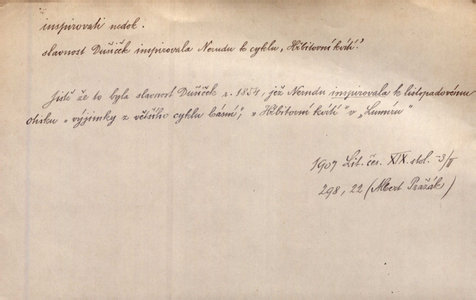 inspirovati nedok.
slavnost Dušiček inspirovala Nerudu k cyklu „Hřbitovní kvítí“.
Jistě že to byla slavnost Dušiček r. 1854, jež Nerudu inspirovala k listopadovému
otisku „výjimky z většího cyklu básní“, „Hřbitovní kvítí“ v „Lumíru“
1907 Lit. čes. XIX. stol. -3/II
298, 22 (Albert Pražák)